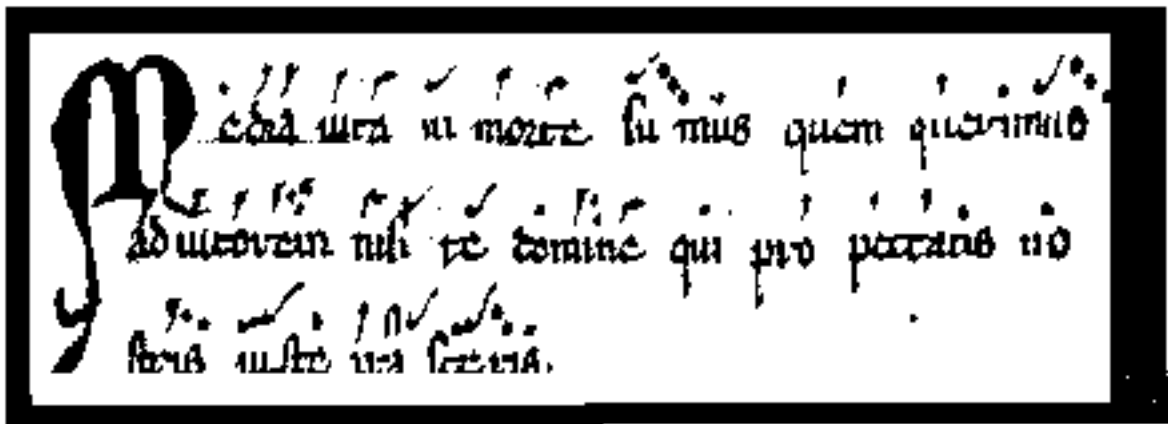 Media uita in morte su mus quem querimus
adiutorem nisi te domine qui pro peccatis no
stris iuste ira sceris.